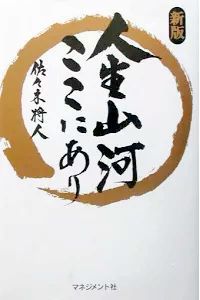 新版
人生山河
ここにあり
佐々木将人
マネジメント社